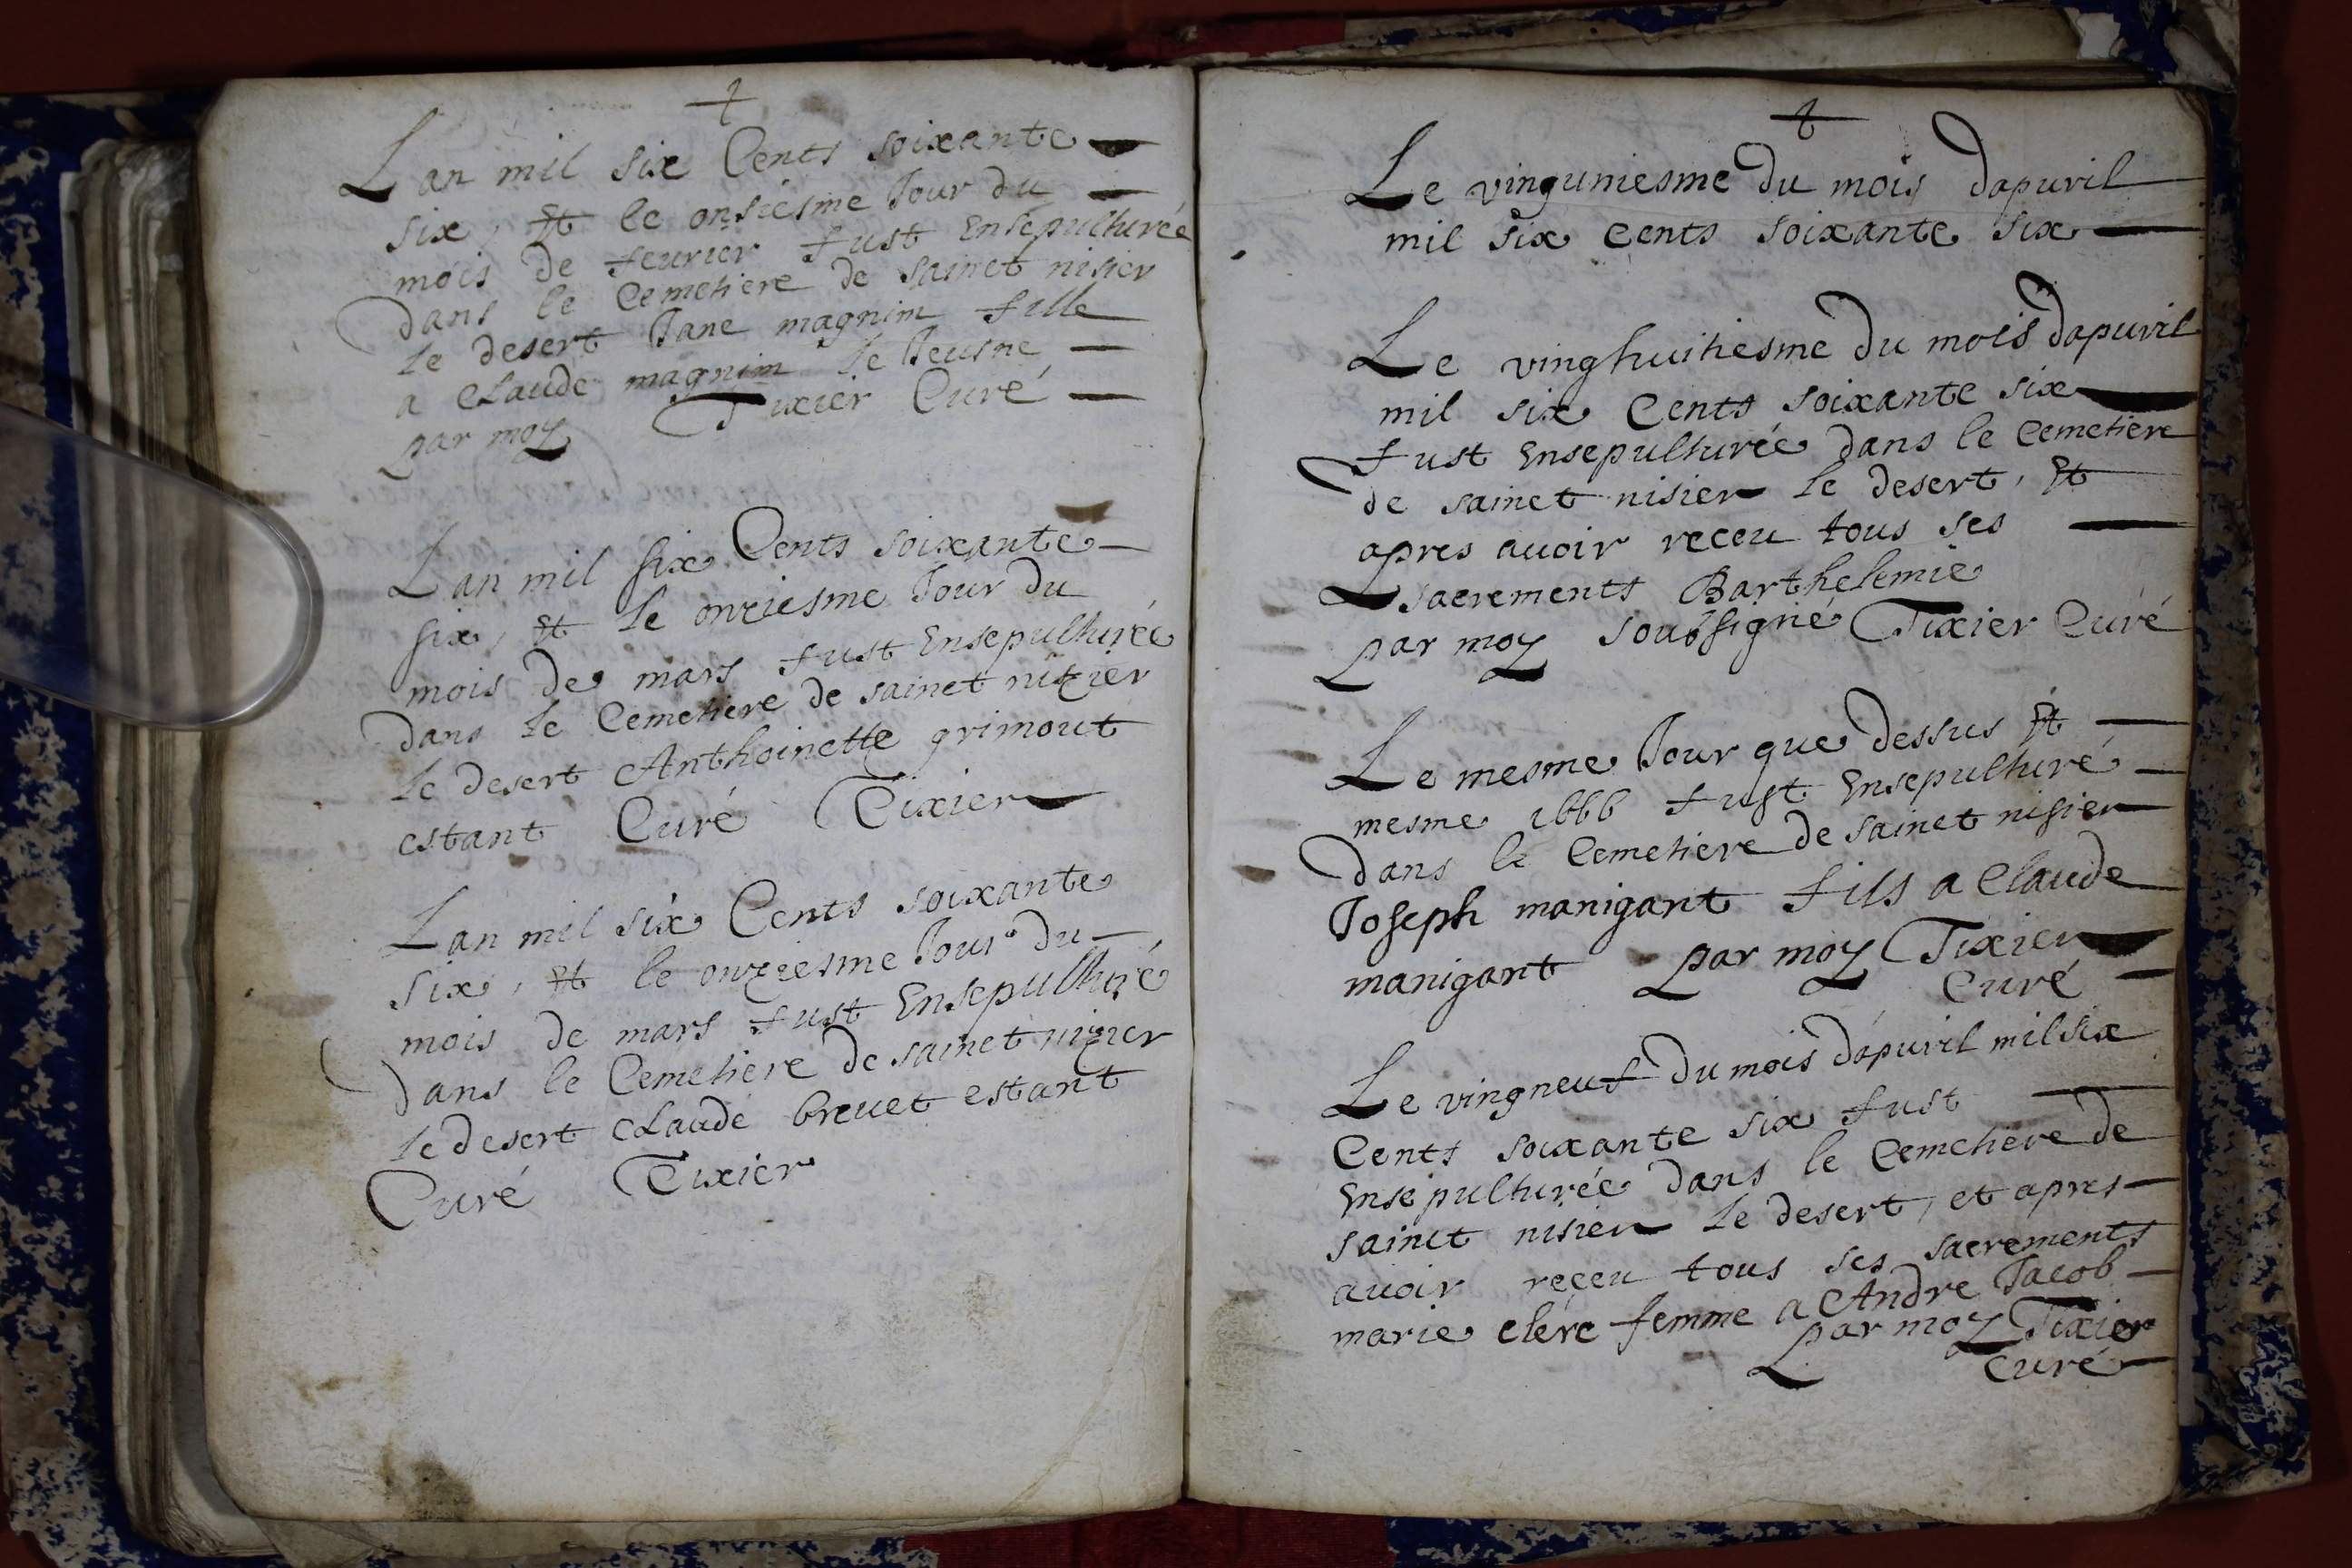 Lan mil six Cents soixante
six, Et le onsiesme Jour du
mois de feurier fust Ensepulturée
dans le Cemetiere de sainct nisier
le desert Jane magnin fille
a Claude magnin le Jeusne
par moy Tixier Curé
Lan mil six Cents soixante
six, Et le onziesme Jour du
mois de mars fust Ensepulturée
dans le Cemetiere de sainct nizier
le desert Anthoinette grimout
estant Curé Tixier
Lan mil six Cents soixante
six, Et le onziesme Jour du
mois de mars fust Ensepulturé
dans le Cemetiere de sainct nizier
le desert Claude breuet estant
Curé Tixier
Le vinguniesme du mois dapuril
mil six cents soixante six
Le vinghuitiesme du mois dapuril
mil six Cents soixante six
fust Ensepulturée dans le Cemetiere
de sainct nisier le desert, Et
apres auoir receu tous ses
sacrements Barthelemie
par moy soubsigné Tixier Curé
Le mesme Jour que dessus Et
mesme 1666 fust Ensepulturé
dans le Cemetiere de sainct nisier
Joseph manigant fils a Claude
manigant par moy Tixier
Curé
Le vingneuf du mois dapuril mil six
Cents soixante six fust
Ensepulturée dans le Cemetiere de
sainct nisier le desert, et apres
auoir receu tous ses sacrements
marie clerc femme a Andre Jacob
par moy Tixier
Curé